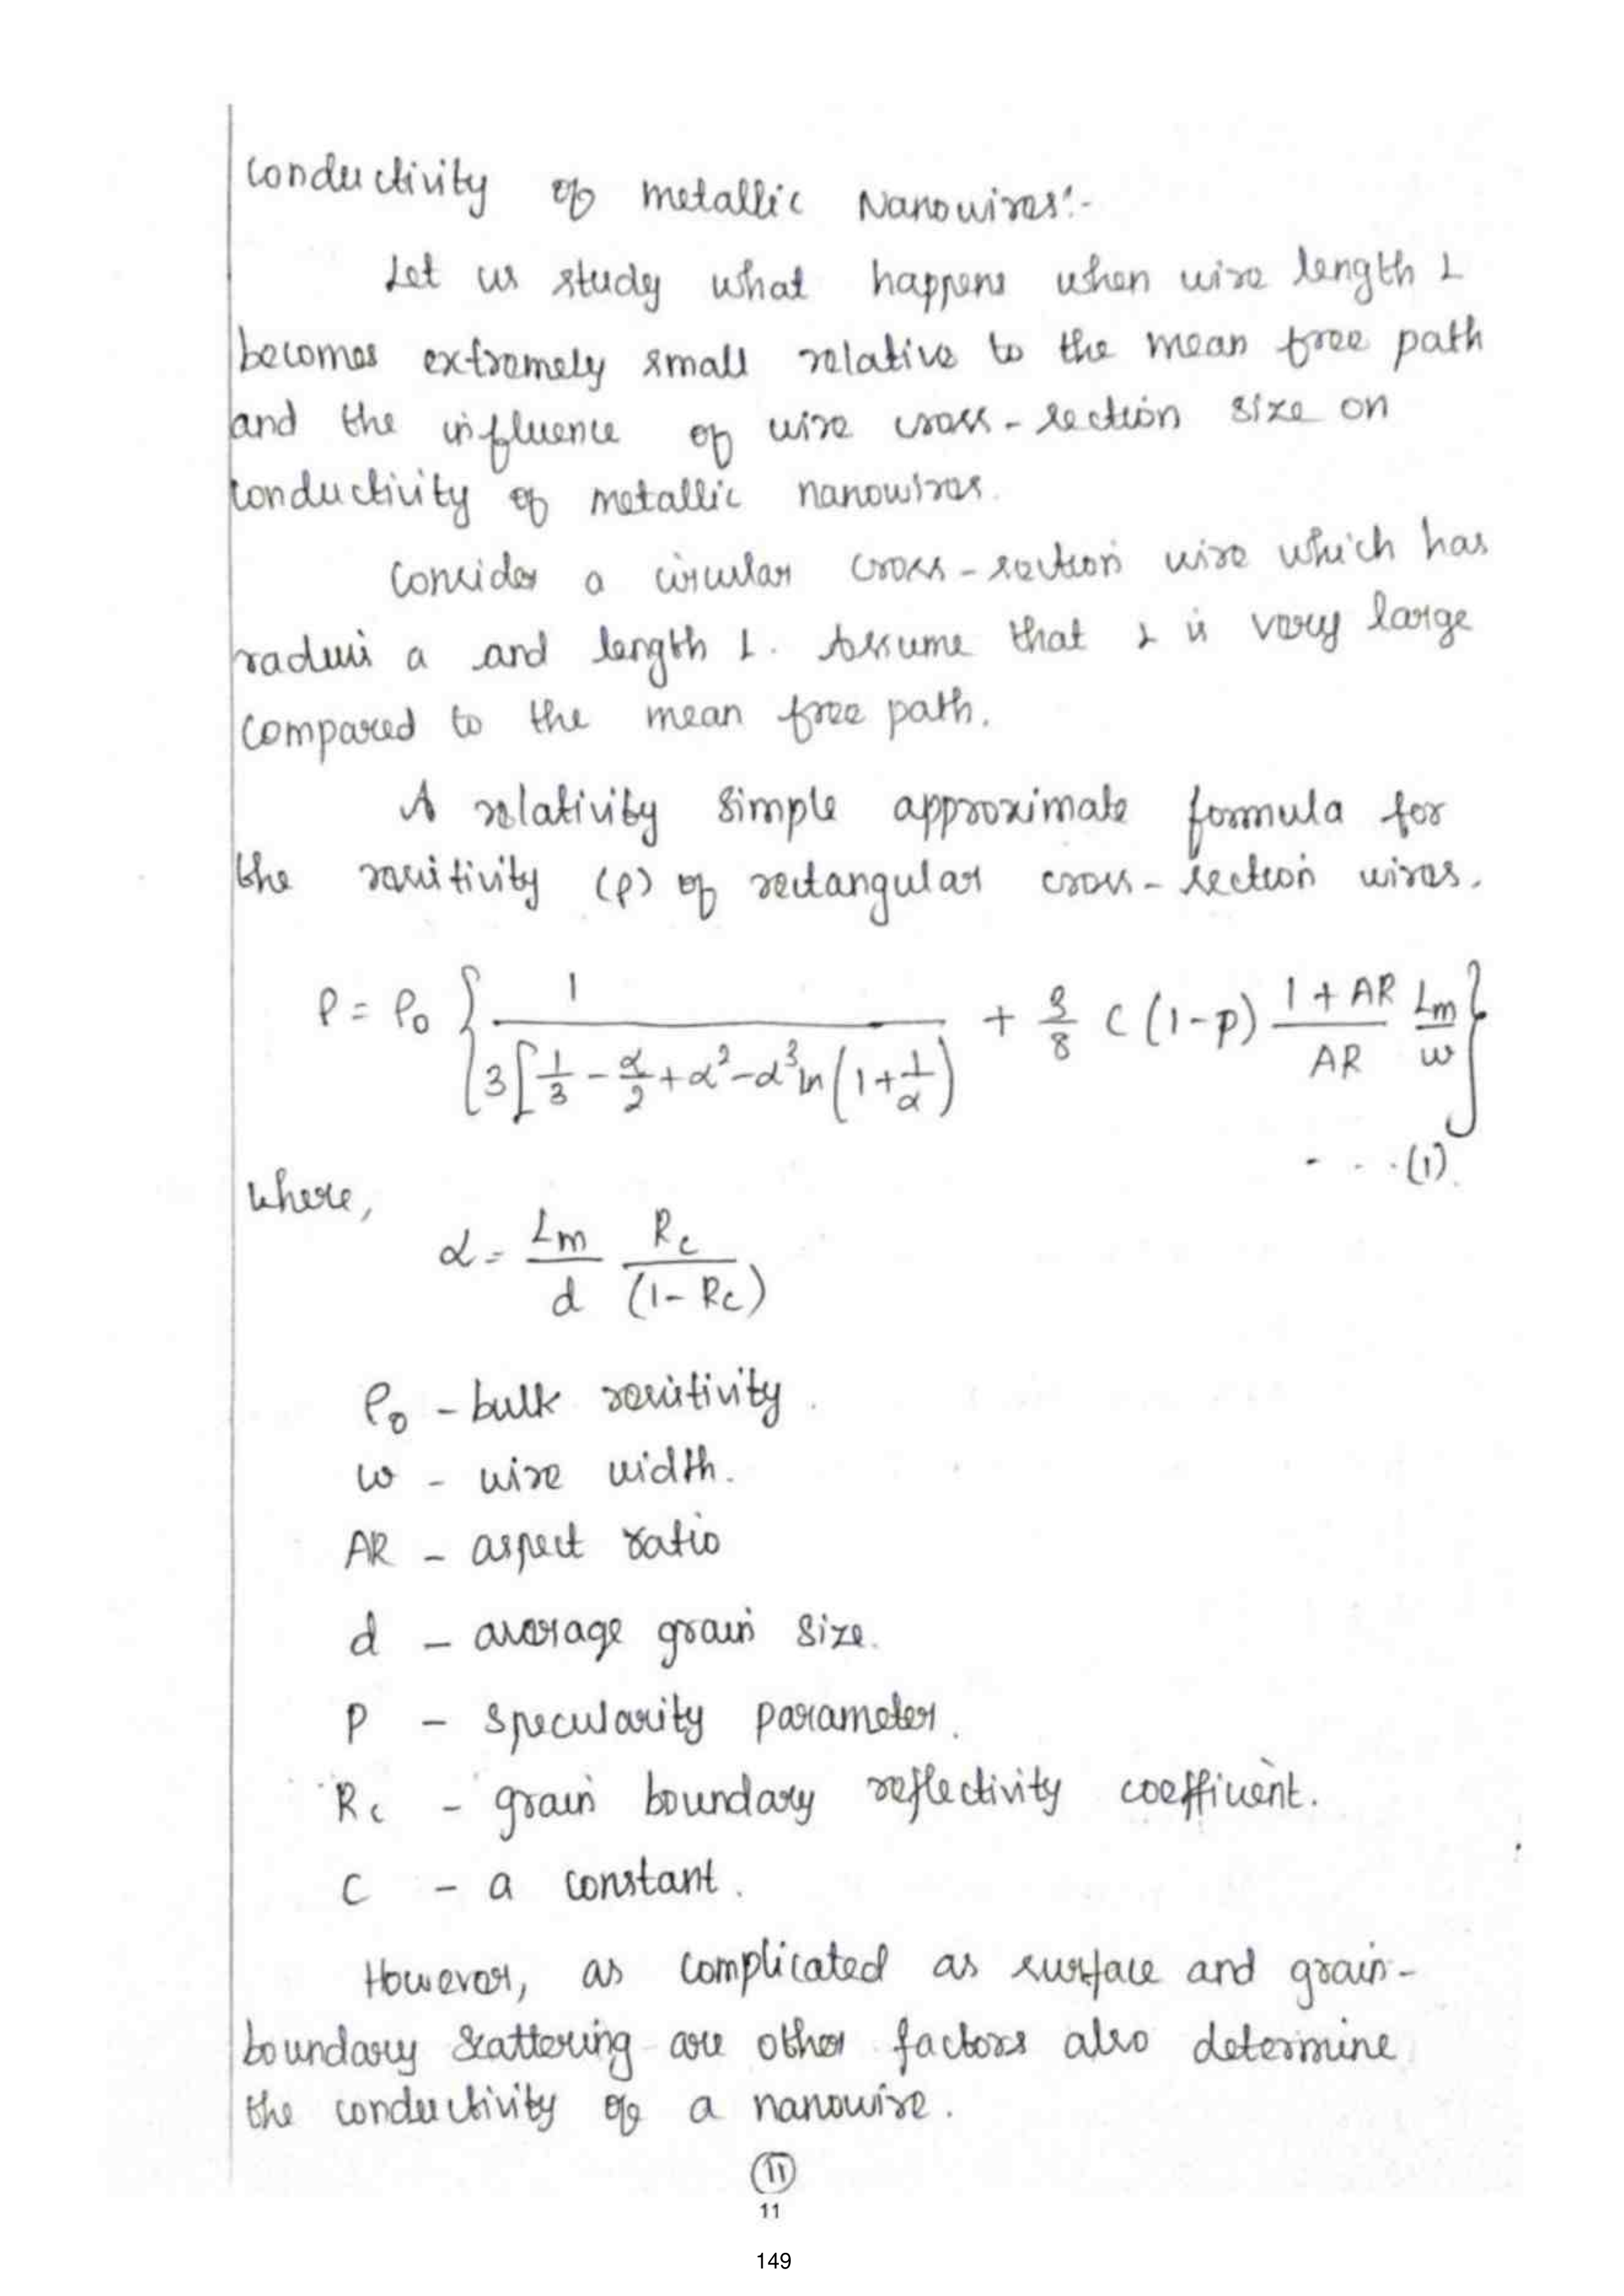 Conductivity of metallic Nanowires:-
Let us study what happens when wire length L
becomes extremely small relative to the mean free path
and the influence of wire cross-section size on
conductivity of metallic nanowires.
Consider a circular cross-section wire which has
radius a and length L. Assume that L is very large
compared to the mean free path.
A relativity simple approximate formula for
the resistivity (ρ) of rectangular cross-section wires.
ρ = ρ₀ { 1 / 3[1/3 - α/2 + α² - α³ ln(1 + 1/α) + 3/8 C (1-p) (1+AR)/AR Lm/w }
- - - (1).
where,
α = Lm/d Rc/(1-Rc)
ρ₀ - bulk resistivity.
w - wire width.
AR - aspect ratio
d - average grain size.
P - specularity parameter.
Rc - grain boundary reflectivity coefficient.
C - a constant.
However, as complicated as surface and grain-
boundary scattering are other factors also determine
the conductivity of a nanowire.
11
11
149